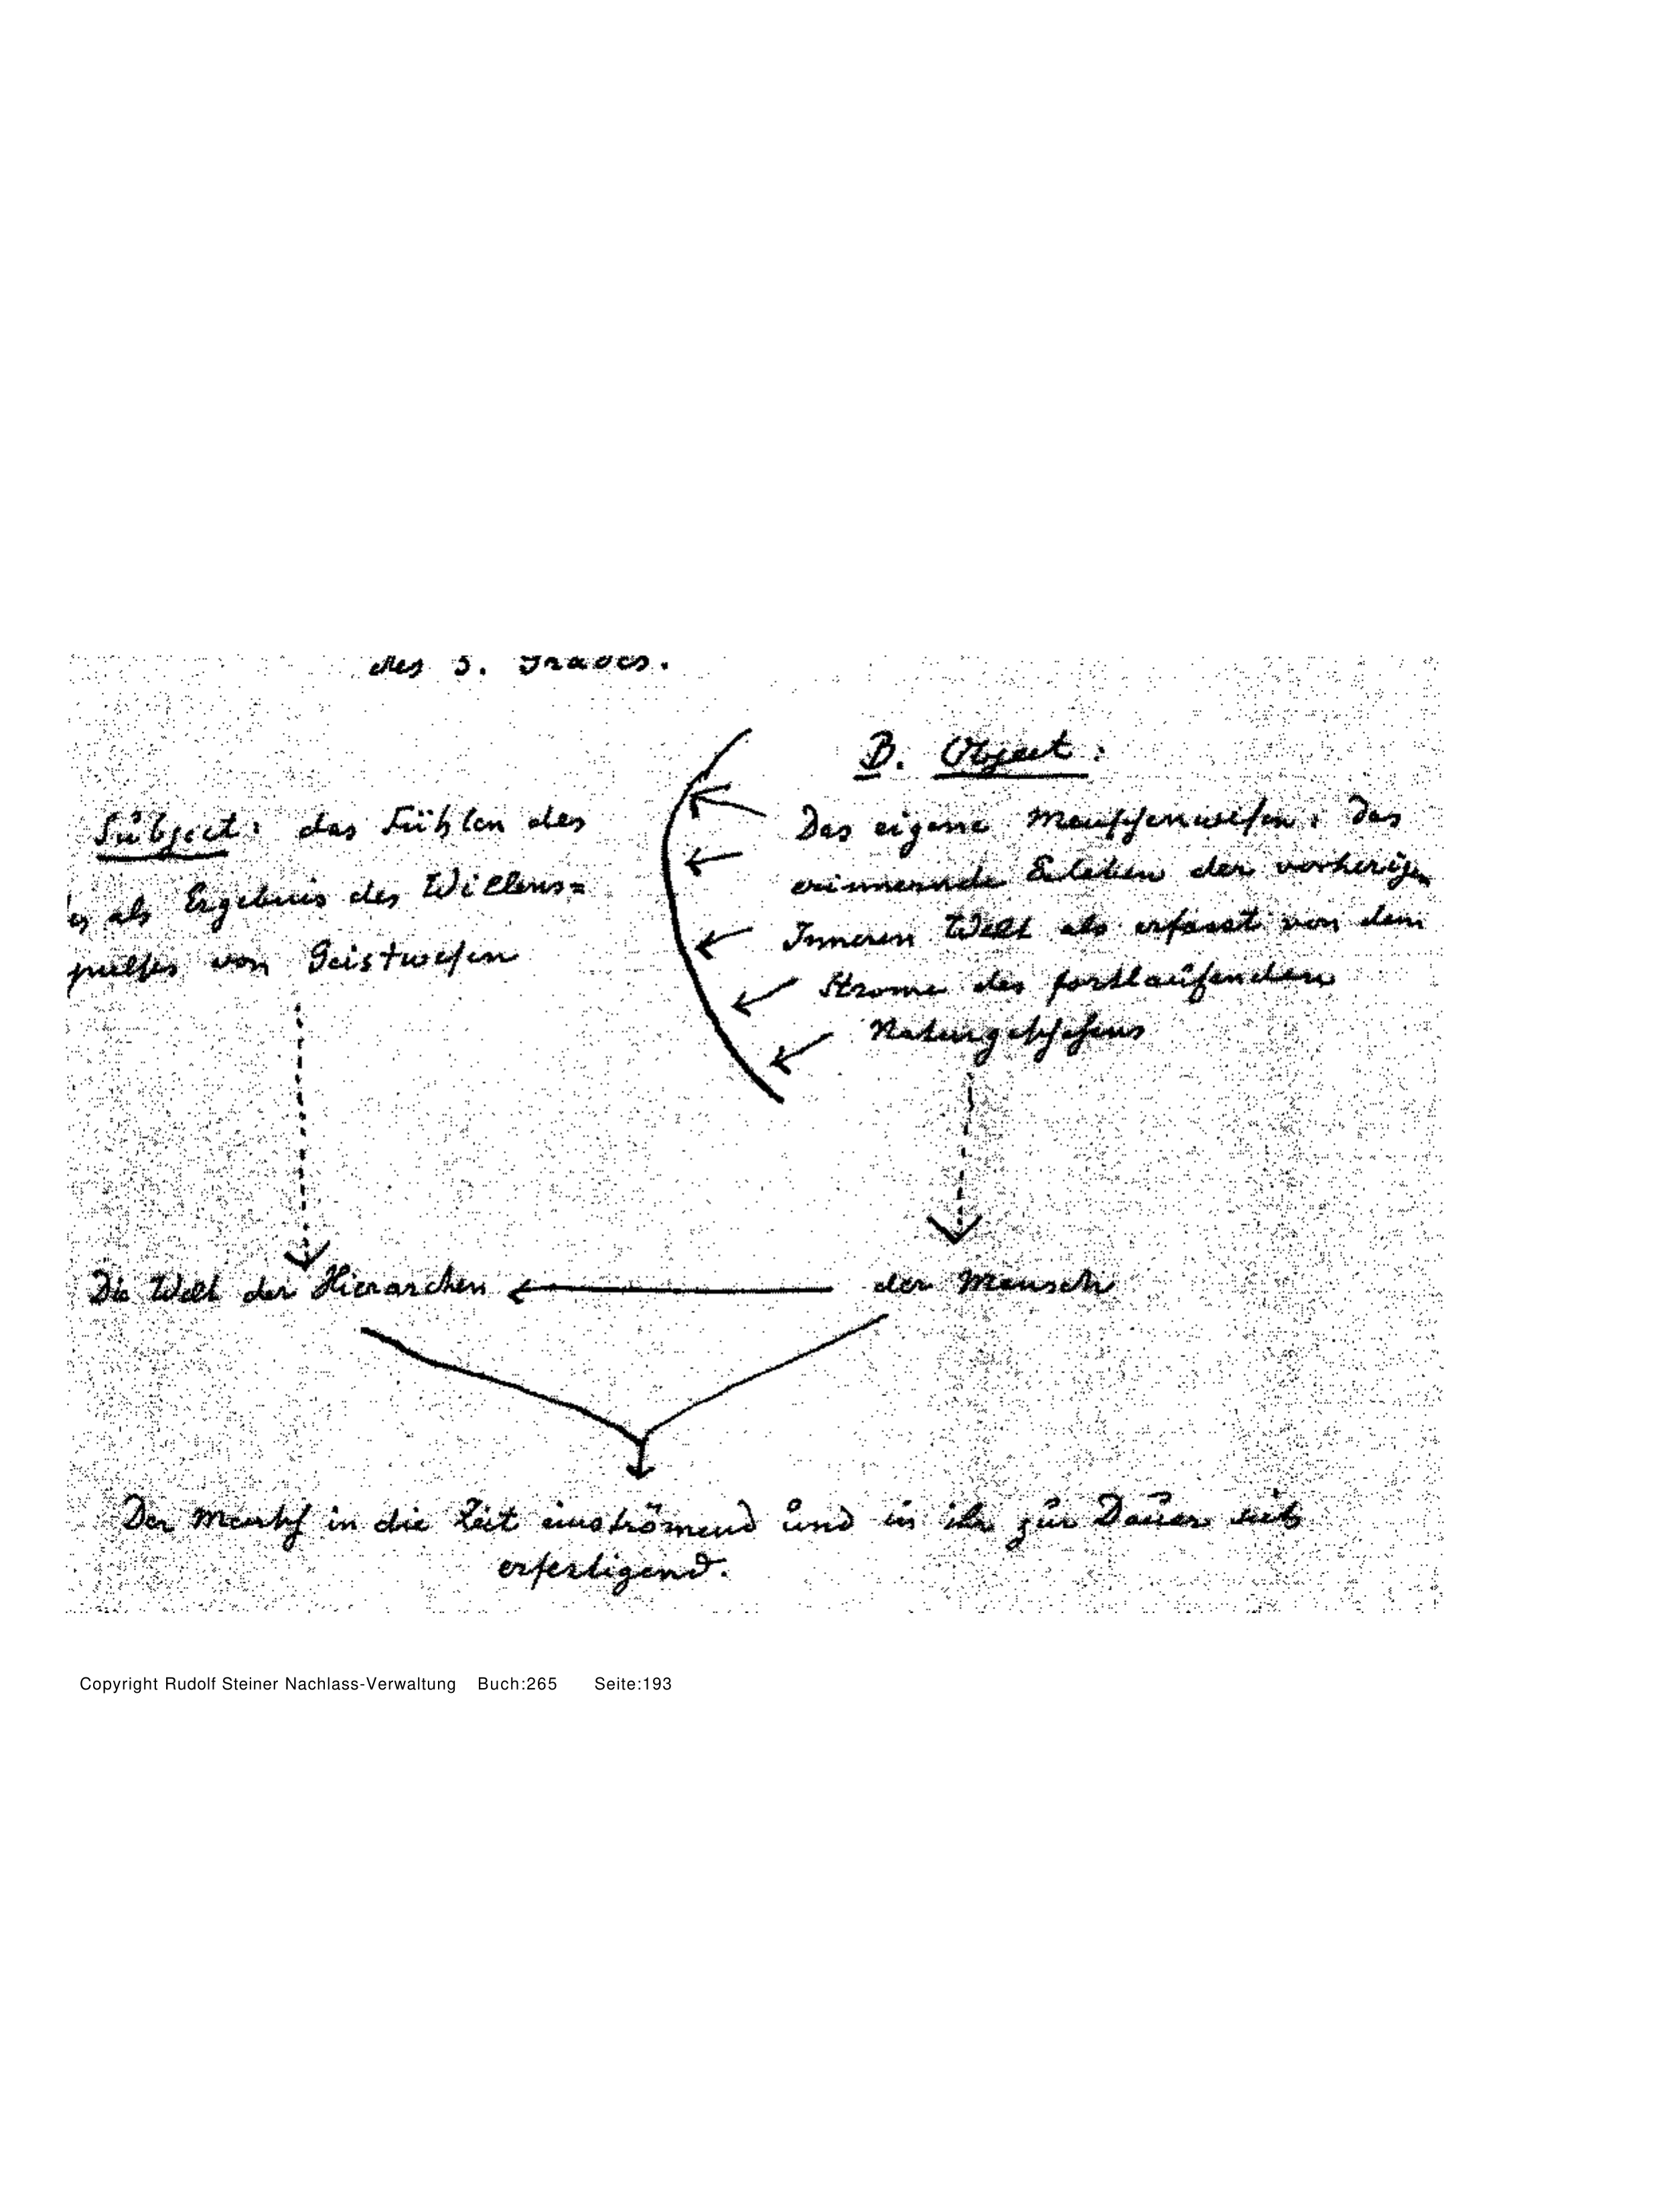 des 3. Grades.
B. Object:
Subject: das Fühlen des
es als Ergebnis des Willens=
pulses von Geistwesen
Das eigene Menschenwesen: das
erinnernde Erleben der vorherigen
Inneren Welt als erfasst von dem
Strome des fortlaufenden
Naturgeschehens
Die Welt der Hierarchen
der Mensch
Der Mensch in die Zeit einströmend und in ihr zur Dauer sich
erfestigend.
Copyright Rudolf Steiner Nachlass-Verwaltung Buch:265 Seite:193